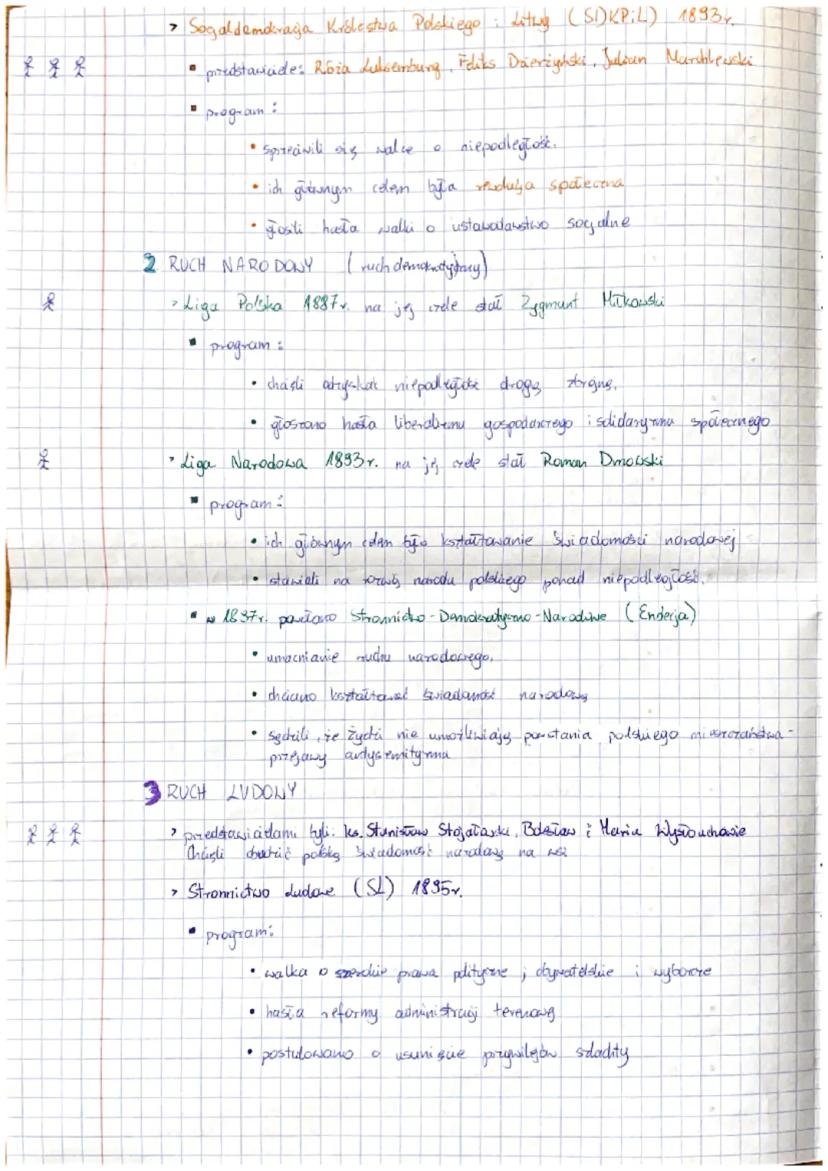 > Socjaldemokracja Królestwa Polskiego i Litwy (SDKPiL) 1893r.
▪ przedstawiciele: Róża Luksemburg, Feliks Dzierżyński, Julian Marchlewski
▪ program:
• sprzeciwili się walce o niepodległość.
• ich głównym celem była rewolucja społeczna
• głosili hasła walki o ustawodawstwo socjalne
2 RUCH NARODOWY (ruch demokratyczny)
> Liga Polska 1887r. na jej czele stał Zygmunt Miłkowski
▪ program:
• chcieli odzyskać niepodległość drogą zbrojną.
• głoszono hasła liberalizmu gospodarczego i solidaryzmu społecznego
> Liga Narodowa 1893r. na jej czele stał Roman Dmowski
▪ program:
• ich głównym celem było kształtowanie świadomości narodowej
• stawiali na rozwój narodu polskiego ponad niepodległość.
▪ w 1897r. powstało Stronnictwo-Demokratyczno-Narodowe (Endecja)
• umacnianie ruchu narodowego.
• chciano kształtować świadomość narodową
• sądzili, że Żydzi nie umożliwiają powstania polskiego mieszczaństwa -
przejawy antysemityzmu
3 RUCH LUDOWY
> przedstawicielami byli: ks. Stanisław Stojałowski, Bolesław i Maria Wysłouchowie
Chcieli obudzić polską świadomość narodową na wsi
> Stronnictwo Ludowe (SL) 1895r.
▪ program:
• walka o szerokie prawa polityczne, obywatelskie i wyborcze
• hasła reformy administracji terenowej
• postulowano o usunięcie przywilejów szlachty